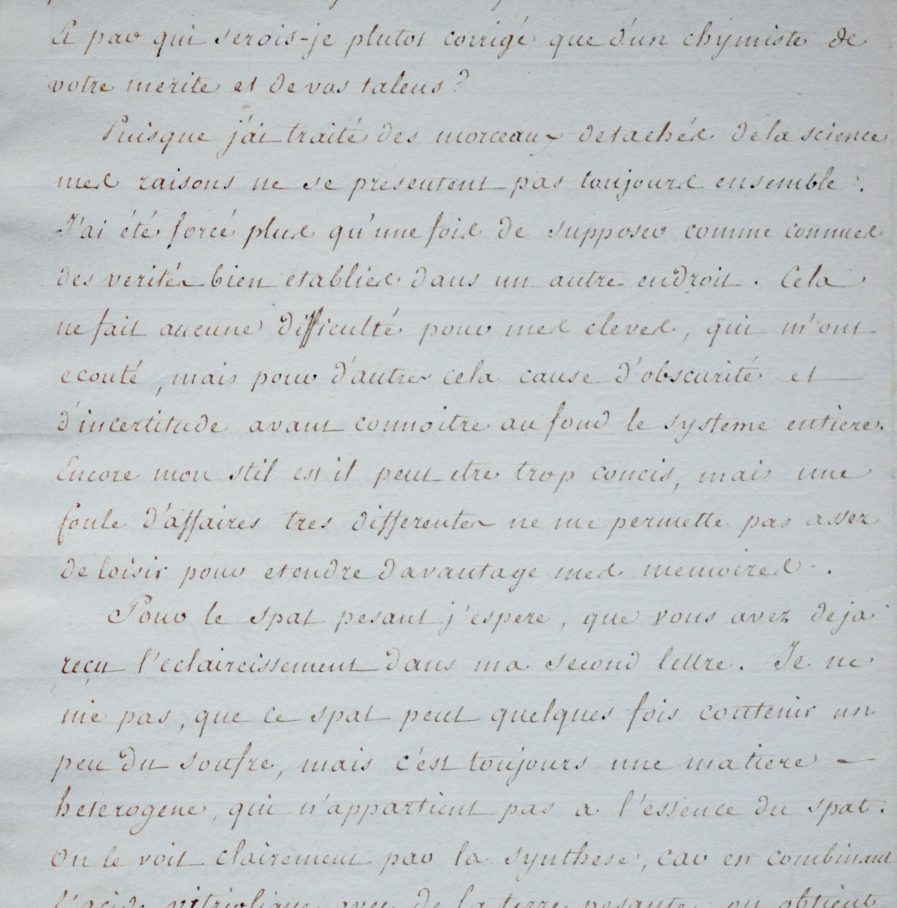 Et par qui serois-je plutot corrigé que d'un chymiste de
votre merite et de vos talens?
Puisque j'ai traité des morceaux detachés de la science
mes raisons ne se presentent pas toujours ensemble.
J'ai été forcé plus qu'une fois de supposer comme connues
des verités bien etablies dans un autre endroit. Cela
ne fait aucune difficulté pour mes eleves, qui m'ont
ecouté, mais pour d'autres cela cause d'obscurité et
d'incertitude avant connoitre au fond le systeme entiere.
Encore mon stil est il peut etre trop concis, mais une
foule d'affaires tres differentes ne me permette pas assez
de loisir pour etendre davantage mes memoires.
Pour le spat pesant j'espere, que vous avez deja
reçu l'eclaircissement dans ma second lettre. Je ne
nie pas, que ce spat peut quelques fois contenir un
peu du soufre, mais c'est toujours une matiere
heterogene, qui n'appartient pas a l'essence du spat.
On le voit clairement par la synthese, car en combinant
l'acide vitriolique avec de la terre pesante on obtient